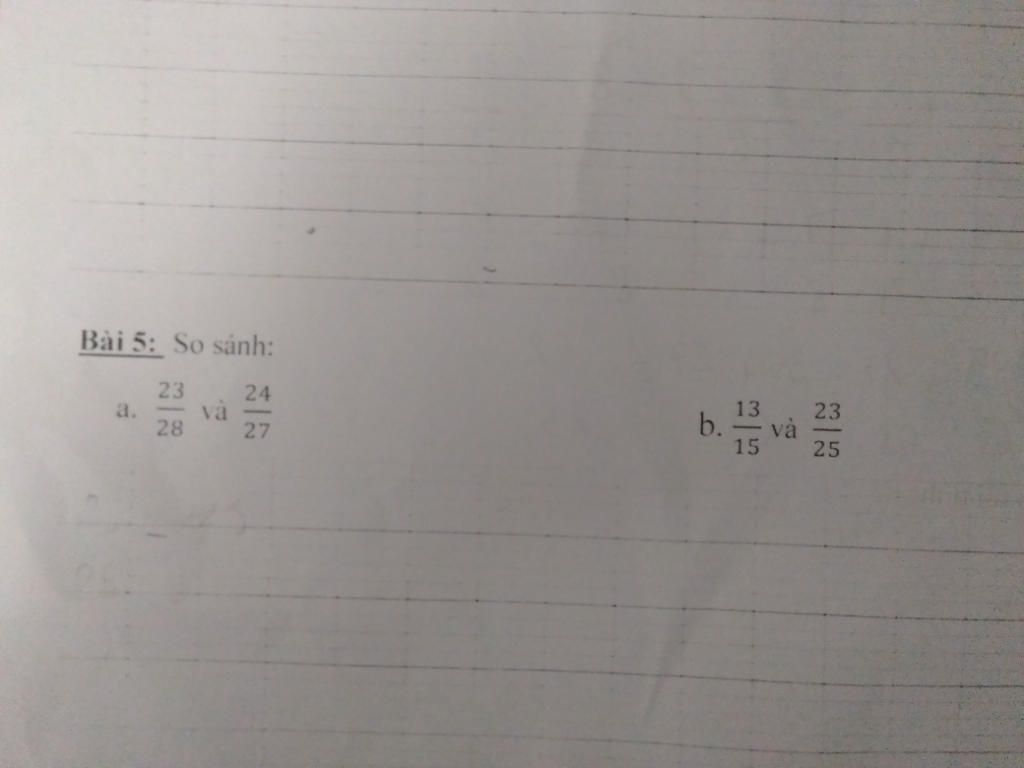 Bài 5: So sánh:
a. 23/28 và 24/27
b. 13/15 và 23/25